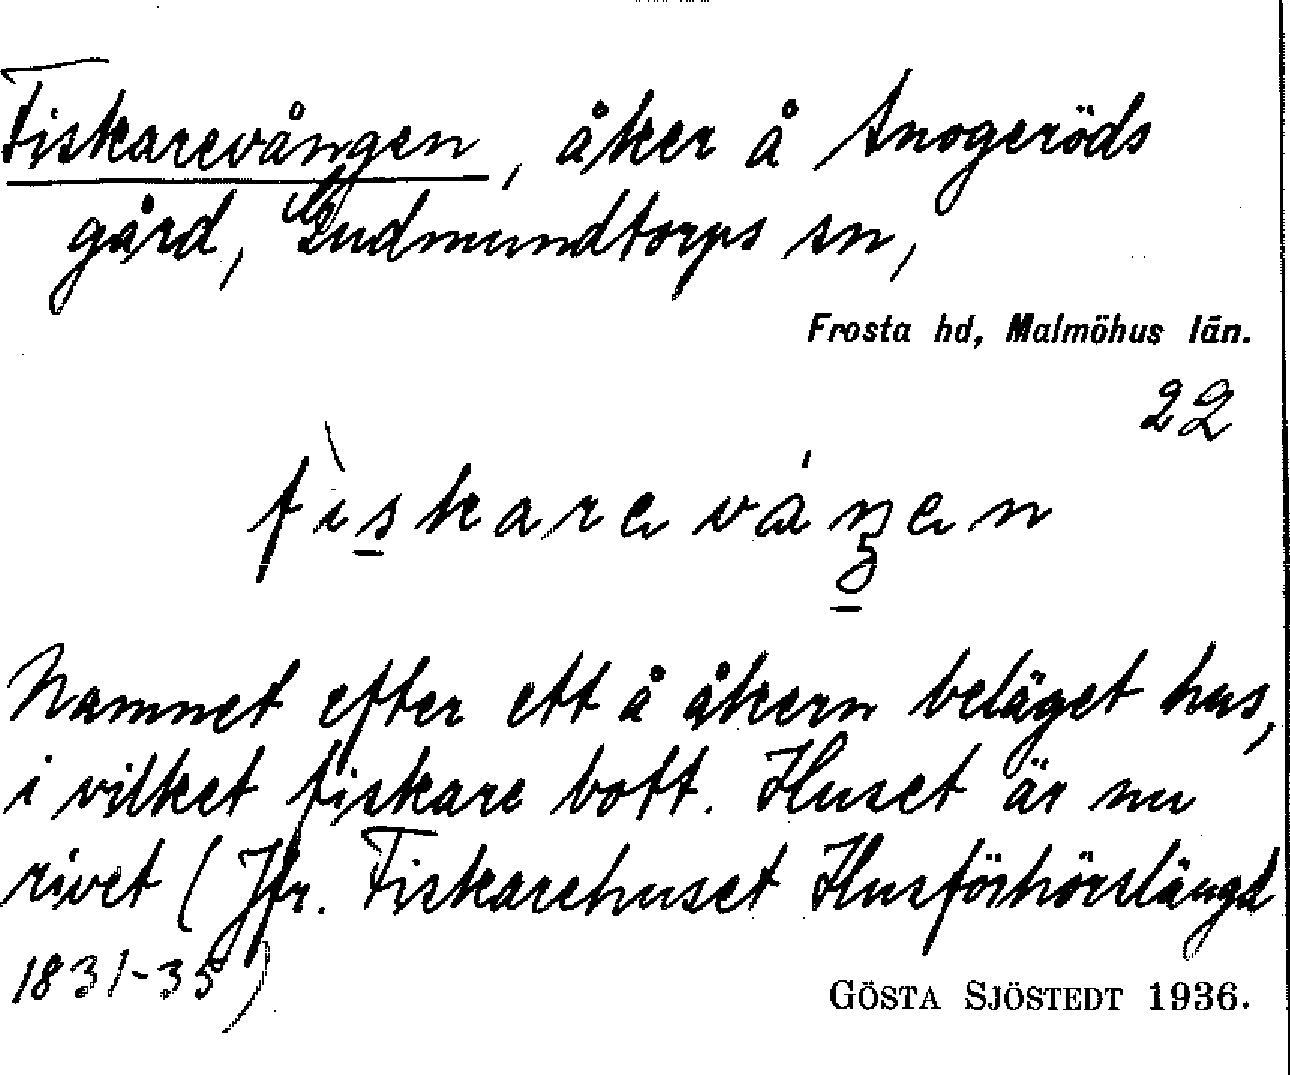 Fiskarevången, åker å Snogeröds
gård, Gudmundtorps sn,
Frosta hd, Malmöhus län.
22
fìskarevánen
Namnet efter ett å åkern beläget hus,
i vilket fiskare bott. Huset är nu
rivet (Jfr. Fiskarehuset Husförhörslängd
1831-35)
GÖSTA SJÖSTEDT 1936.